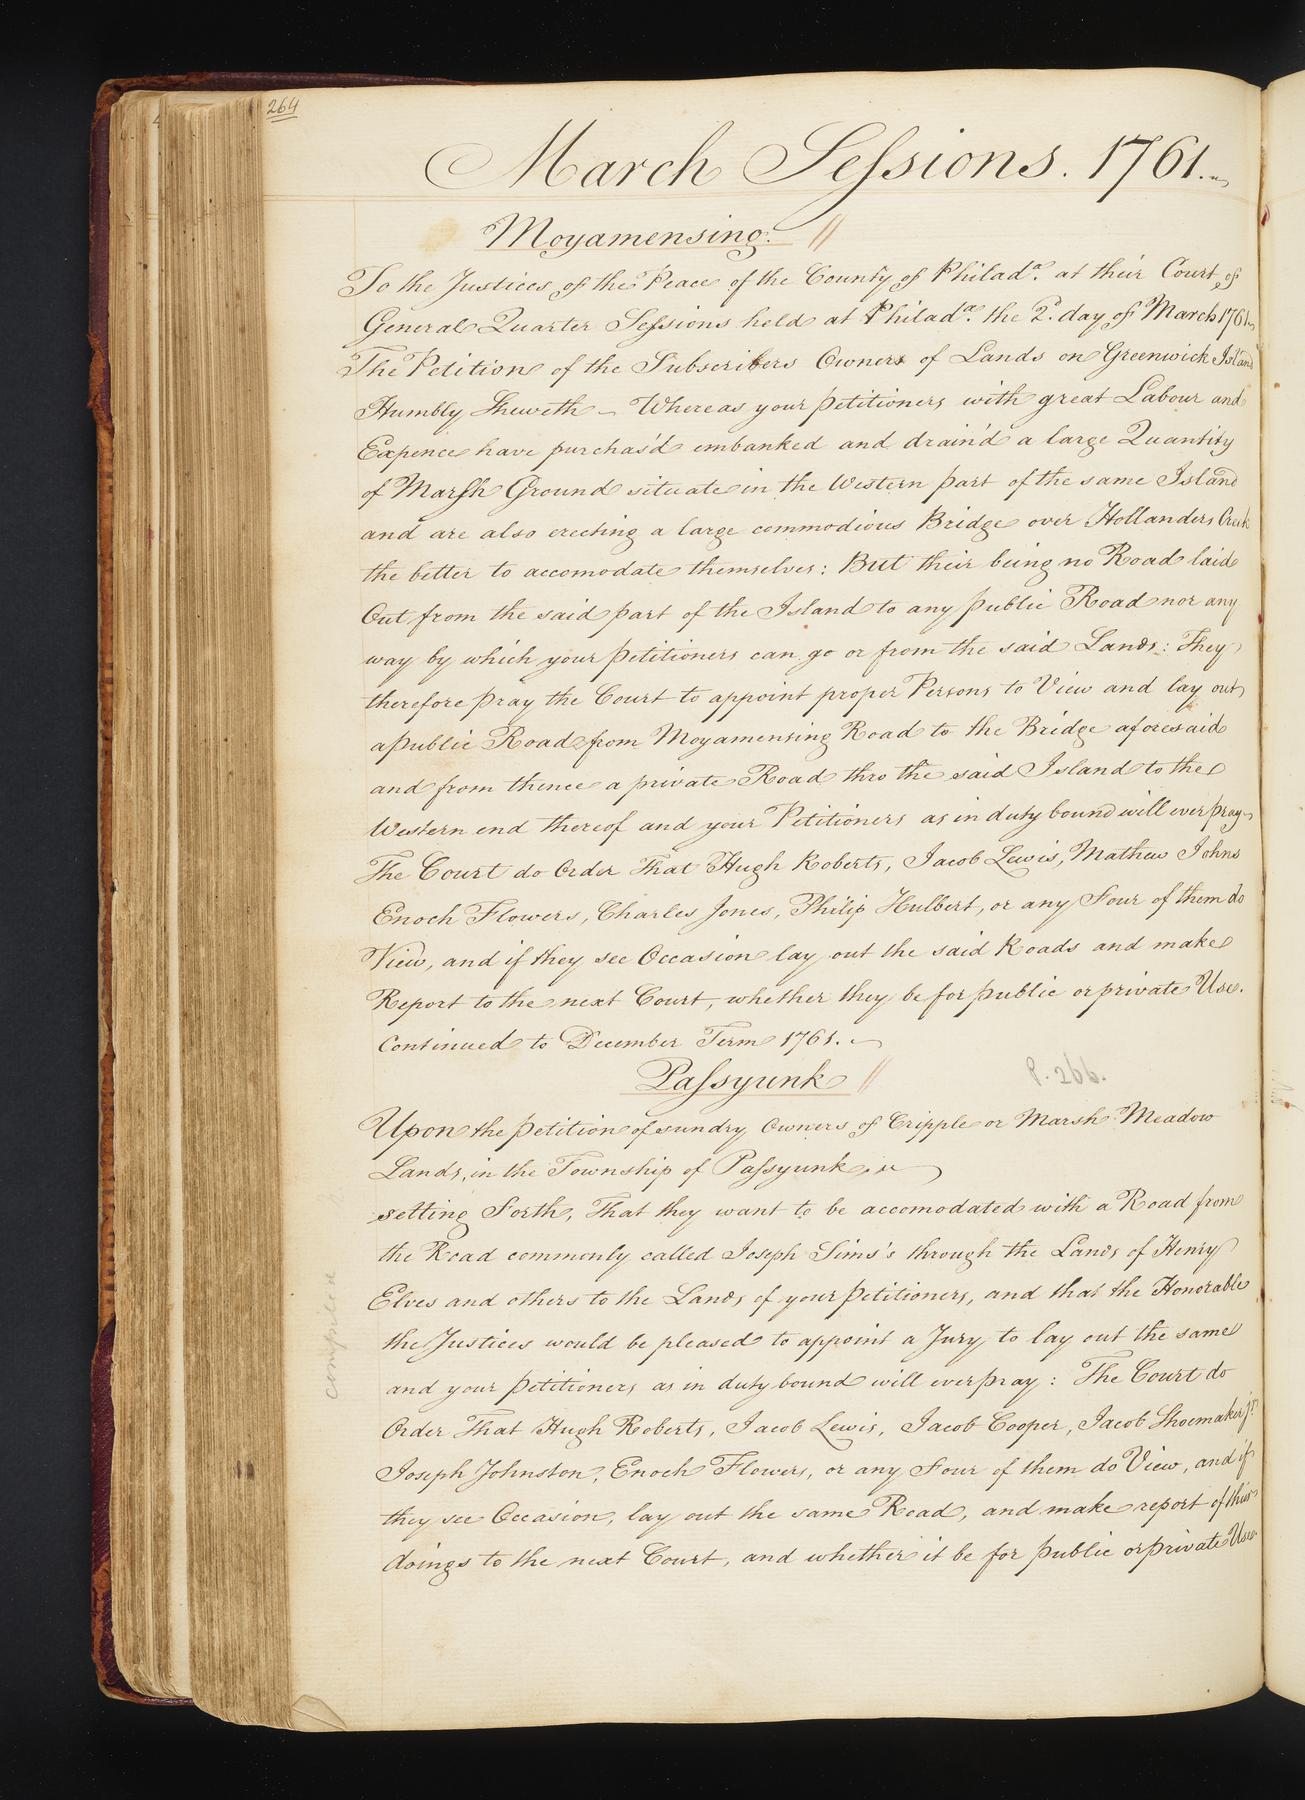 264
March Sessions. 1761.
Moyamensing. //
To the Justices of the Peace of the County of Philada. at their Court of
General Quarter Sessions held at Philada. the 2d. day of March 1761
The Petition of the Subscribers Owners of Lands on Greenwick Island
Humbly Sheweth – Whereas your petitioners with great Labour and
Expence have purchas'd embanked and drain'd a large Quantity
of Marsh Ground situate in the Western part of the same Island
and are also erecting a large commodious Bridge over Hollanders Creek
the better to accomodate themselves: But their being no Road laid
Out from the said part of the Island to any public Road nor any
way by which your petitioners can go or from the said Lands: They
therefore pray the Court to appoint proper Persons to View and lay out
a public Road from Moyamensing Road to the Bridge aforesaid
and from thence a private Road thro the said Island to the
Western end thereof and your Petitioners as in duty bound will ever pray
The Court do Order That Hugh Roberts, Jacob Lewis, Mathew Johns
Enoch Flowers, Charles Jones, Philip Hulbert, or any Four of them do
View, and if they see Occasion lay out the said Roads and make
Report to the next Court, whether they be for public or private Use.
Continued to December Term 1761.
Passyunk //
P. 266.
Upon the petition of sundry Owners of Cripple or Marsh Meadow
Lands, in the Township of Passyunk
setting Forth, That they want to be accomodated with a Road from
the Road commonly called Joseph Sims's through the Lands of Henry
Elves and others to the Lands of your petitioners, and that the Honorable
the Justices would be pleased to appoint a Jury to lay out the same
and your petitioners as in duty bound will ever pray: The Court do
Order That Hugh Roberts, Jacob Lewis, Jacob Cooper, Jacob Shoemaker jr.
Joseph Johnston, Enoch Flowers, or any Four of them do View, and if
they see Occasion, lay out the same Road, and make report of their
doings to the next Court, and whether it be for public or private Use